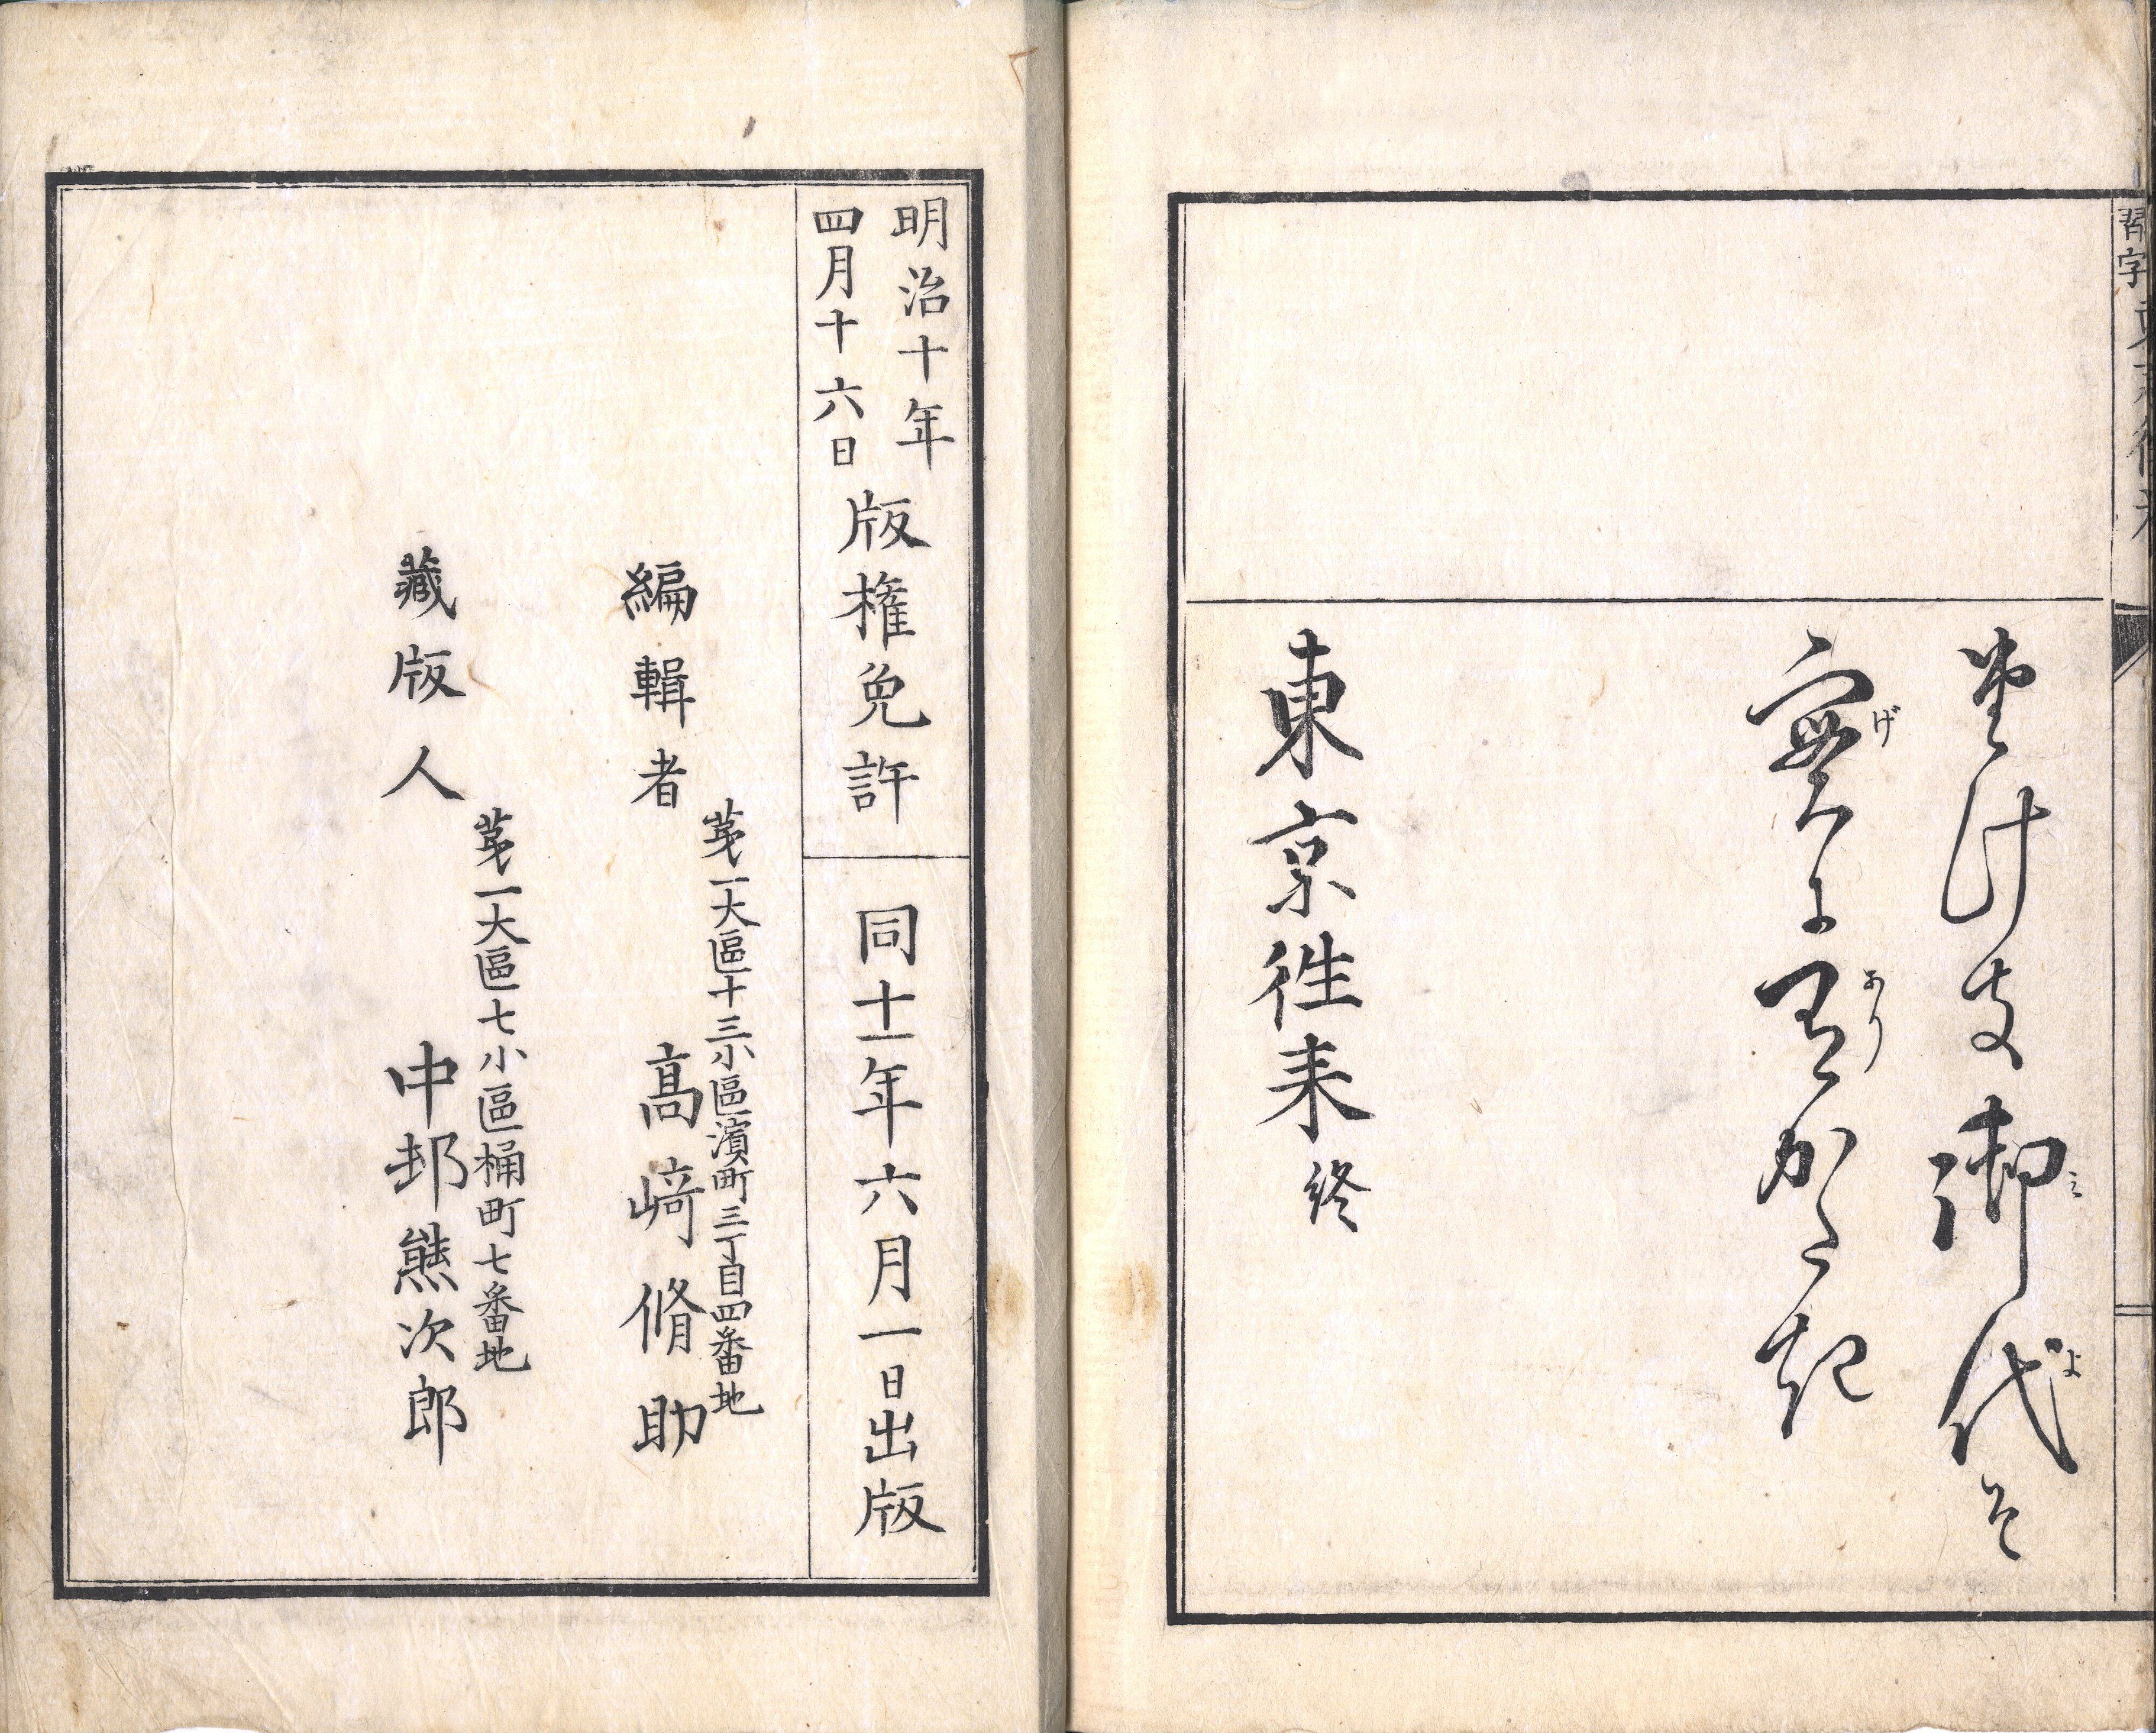 習字東京徃来
たけき御代そ
みよ
實に有かたき
げあり
東京徃来終
明治十年
四月十六日
版権免許
同十一年六月一日出版
苐一大區十三小區濱町三丁目四番地
編輯者 髙﨑脩助
苐一大區七小區桶町七番地
藏版人 中邨熊次郎